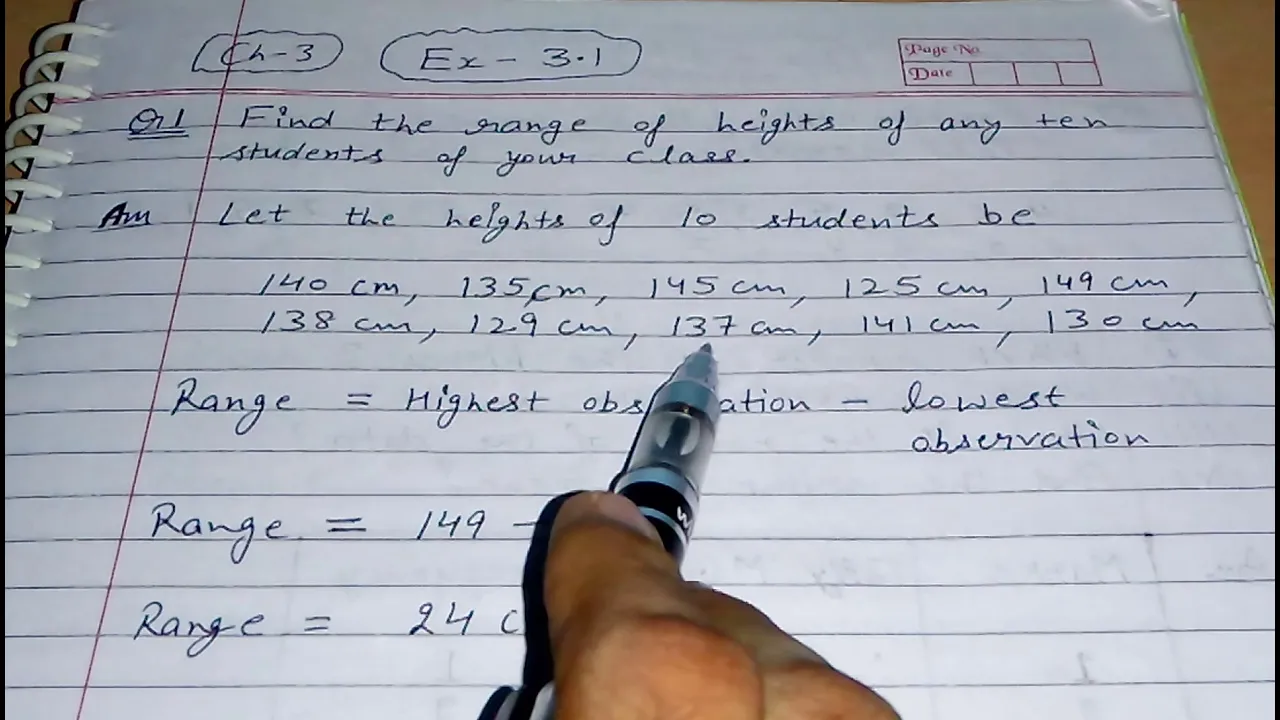 Ch-3 Ex - 3.1
Page No.
Date
Q1 Find the range of heights of any ten
students of your class.
Ans Let the heights of 10 students be
140 cm, 135 cm, 145 cm, 125 cm, 149 cm,
138 cm, 129 cm, 137 cm, 141 cm, 130 cm
Range = Highest obs ation - lowest
observation
Range = 149 -
Range = 24 c